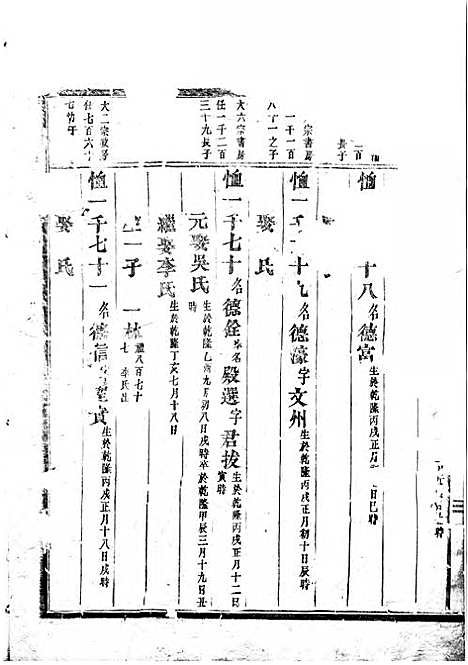 時
百
長子
恤
十八名德宮生於乾隆丙戌正月
日巳時
宗書房
一千一百
八十一之子
恤一千
十九名德濠字文州生於乾隆丙戌正月初十日辰時
娶 氏
大六宗書房
任一千二百
三十九長子
恤一千七十名德銓榜名殿選字君拔生於乾隆丙戌正月十二日
寅時
元娶吳氏生於乾隆乙酉九月初八日戌時卒於乾隆甲辰三月十九日丑
時
繼娶李氏生於乾隆丁亥七月十八日
生一子 一林繼八百七十
七 李氏出
大二宗政房
任七百六十
七初子
恤一千七十一名德信字聖賓生於乾隆丙戌正月十八日戌時
娶 氏